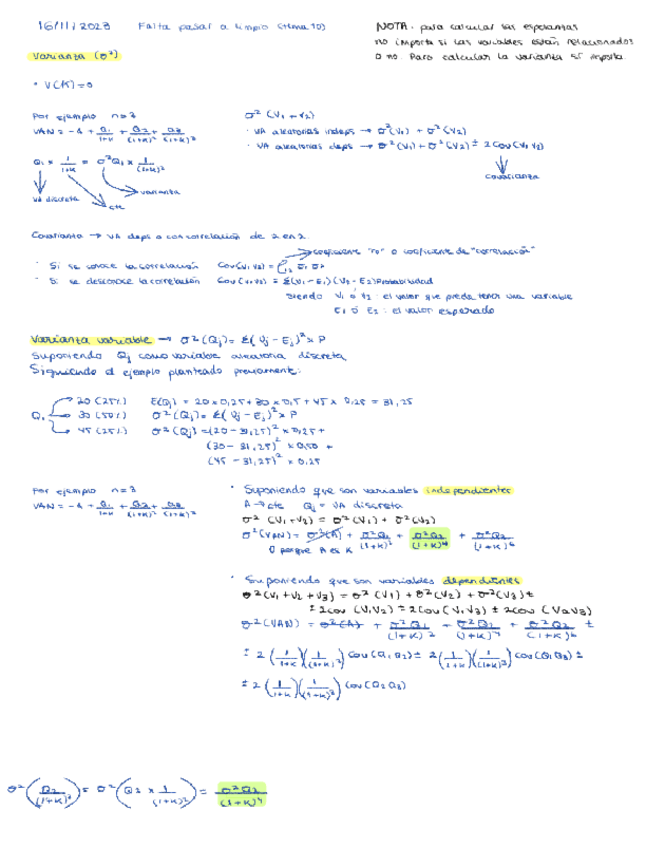 16/11/2023 Falta pasar a limpio (tema 10)
NOTA: para calcular las esperanzas
no importa si las variables están relacionadas
o no. Para calcular la varianza sí importa.
Varianza (σ²)
· V(K)=0
Por ejemplo n=3
VAN = -A + Q1/(1+K) + Q2/(1+K)² + Q3/(1+K)³
Q1 × 1/(1+K) = σ²Q1 × 1/(1+K)²
VA discreta
cte
varianza
σ² (V1 + V2)
· VA aleatorias indeps → σ²(V1) + σ²(V2)
· VA aleatorias deps → σ²(V1) + σ²(V2) ± 2Cov(V1 V2)
covarianza
Covarianza → VA deps o con correlación de 2 en 2.
coeficiente "ro" o coeficiente de "correlación"
· Si se conoce la correlación Cov(V1 V2) = ρ12 σ1 σ2
· Si se desconoce la correlación Cov(V1 V2) = Σ(V1-E1)(V2-E2)Probabilidad
siendo V1 ó V2: el valor que pueda tener una variable
E1 ó E2: el valor esperado
Varianza variable → σ²(Qj) = Σ(Vj - Ej)² × P
Suponiendo Qj como variable aleatoria discreta
Siguiendo el ejemplo planteado previamente:
Q1
20 (25%)
30 (50%)
45 (25%)
E(Q) = 20×0,25+30×0,5+45×0,25 = 31,25
σ²(Qj) = Σ(Vj - Ej)² × P
σ²(Qj) = (20-31,25)² × 0,25 +
(30-31,25)² × 0,50 +
(45-31,25)² × 0,25
Por ejemplo n=3
VAN = -A + Q1/(1+K) + Q2/(1+K)² + Q3/(1+K)³
· Suponiendo que son variables independientes
A → cte Qj = VA discreta
σ² (V1+V2) = σ²(V1) + σ²(V2)
σ²(VAN) = σ²(A) + σ²Q1/(1+K)² + σ²Q2/(1+K)⁴ + σ²Q3/(1+K)⁶
0 porque A es K
· Suponiendo que son variables dependientes
σ²(V1+V2+V3) = σ²(V1) + σ²(V2) + σ²(V3) ±
± 2cov (V1V2) ± 2Cov(V1V3) ± 2cov (V2V3)
σ²(VAN) = σ²(A) + σ²Q1/(1+K)² + σ²Q2/(1+K)⁴ + σ²Q3/(1+K)⁶ ±
± 2 (1/(1+K))(1/(1+K)²) Cov(Q1Q2) ± 2(1/(1+K))(1/(1+K)³) cov(Q1Q3) ±
± 2 (1/(1+K))(1/(1+K)³) Cov(Q2Q3)
σ²(Q2/(1+K)²) = σ²(Q2 × 1/(1+K)²) = σ²Q2/(1+K)⁴